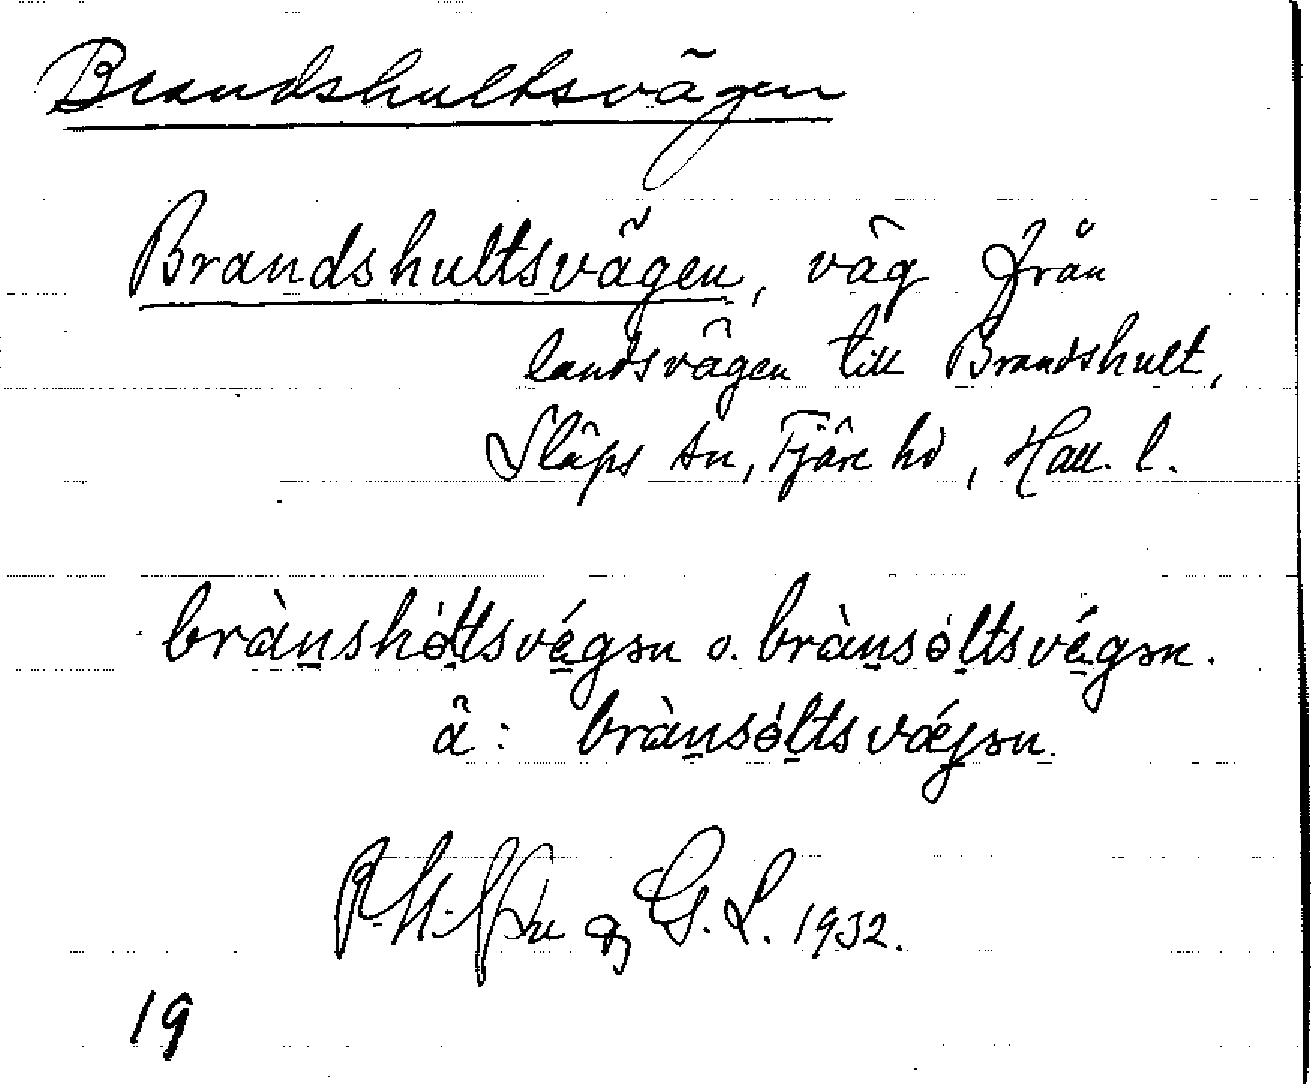 Brandshultsvägen
Brandshultsvägen, väg från
landsvägen till Brandshult,
Släps sn, Fjäre hd, Hall. l.
bràn̲shól̲tsvé̲gən o. bràn̲sól̲tsvé̲gən.
ä: bràn̲sól̲tsvǽjən.
G. L. 1932.
19